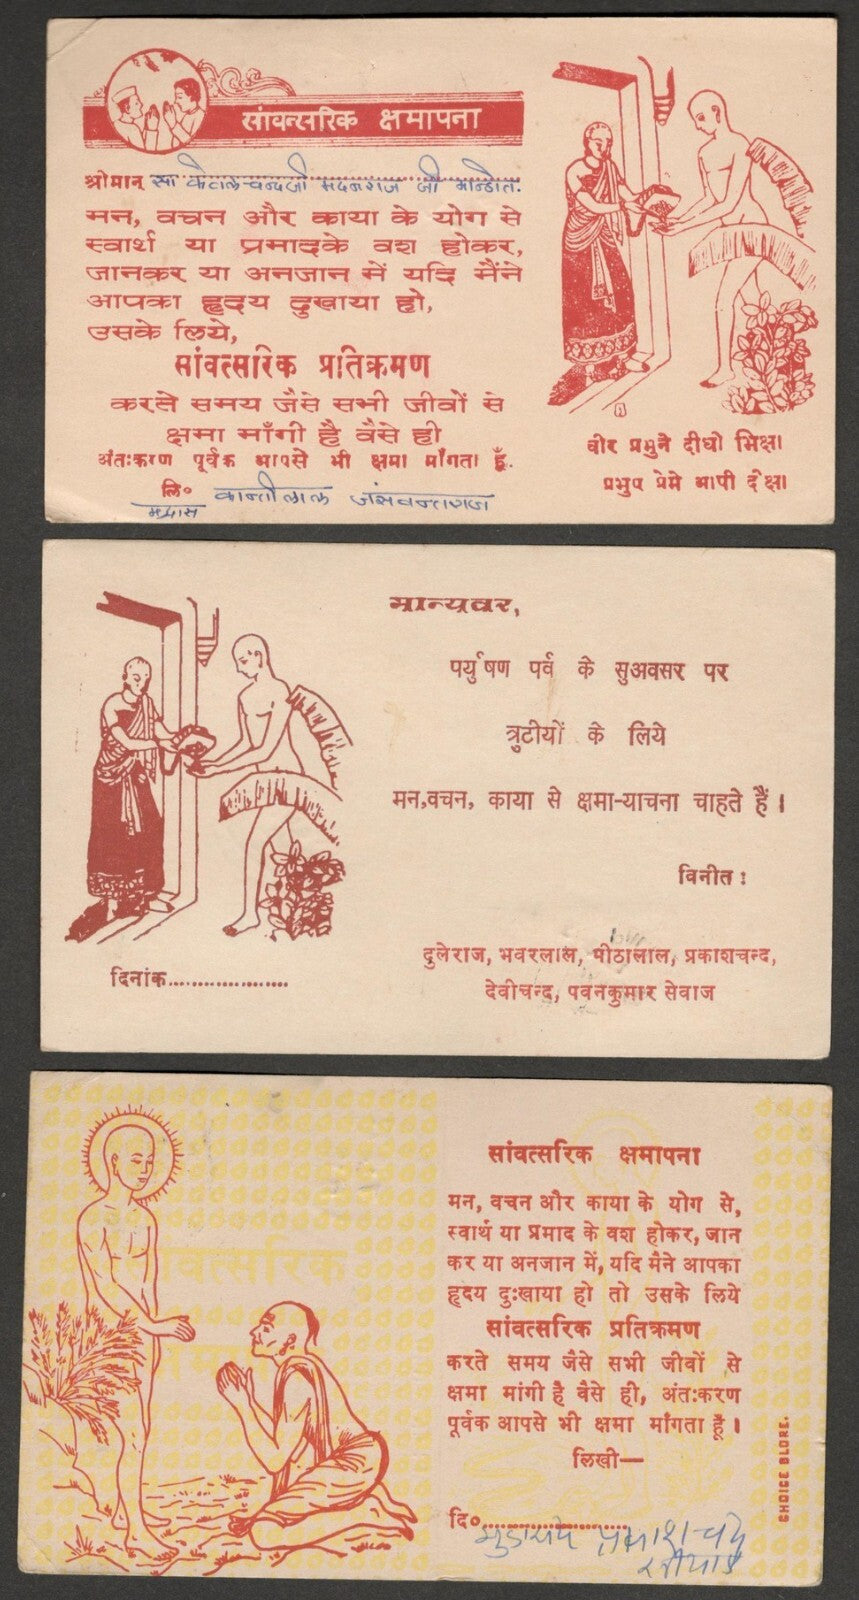 सांवत्सरिक क्षमापना
श्रीमान्
मन, वचन और काया के योग से
स्वार्थ या प्रमादके वश होकर,
जानकर या अनजान में यदि मैंने
आपका हृदय दुखाया हो,
उसके लिये,
सांवत्सरिक प्रतिक्रमण
करते समय जैसे सभी जीवों से
क्षमा माँगी है वैसे ही
अंतःकरण पूर्वक आपसे भी क्षमा माँगता हूँ.
लि० कान्तीलाल जंसवन्तराज
मद्रास
वीर प्रभुने दीधो भिक्षा
प्रभुए प्रेमे आपी दीक्षा
मान्यवर,
पर्युषण पर्व के सुअवसर पर
त्रुटीयों के लिये
मन,वचन, काया से क्षमा-याचना चाहते हैं।
विनीत :
दुलेराज, भवरलाल, मीठालाल, प्रकाशचन्द,
देवीचन्द, पवनकुमार सेवाज
दिनांक....................
सांवत्सरिक क्षमापना
मन, वचन और काया के योग से,
स्वार्थ या प्रमाद के वश होकर, जान
कर या अनजान में, यदि मैने आपका
हृदय दुःखाया हो तो उसके लिये
सांवत्सरिक प्रतिक्रमण
करते समय जैसे सभी जीवों से
क्षमा मांगी है वैसे ही, अंतःकरण
पूर्वक आपसे भी क्षमा माँगता हूँ।
लिखी—
दि०....................
सांवत्सरिक